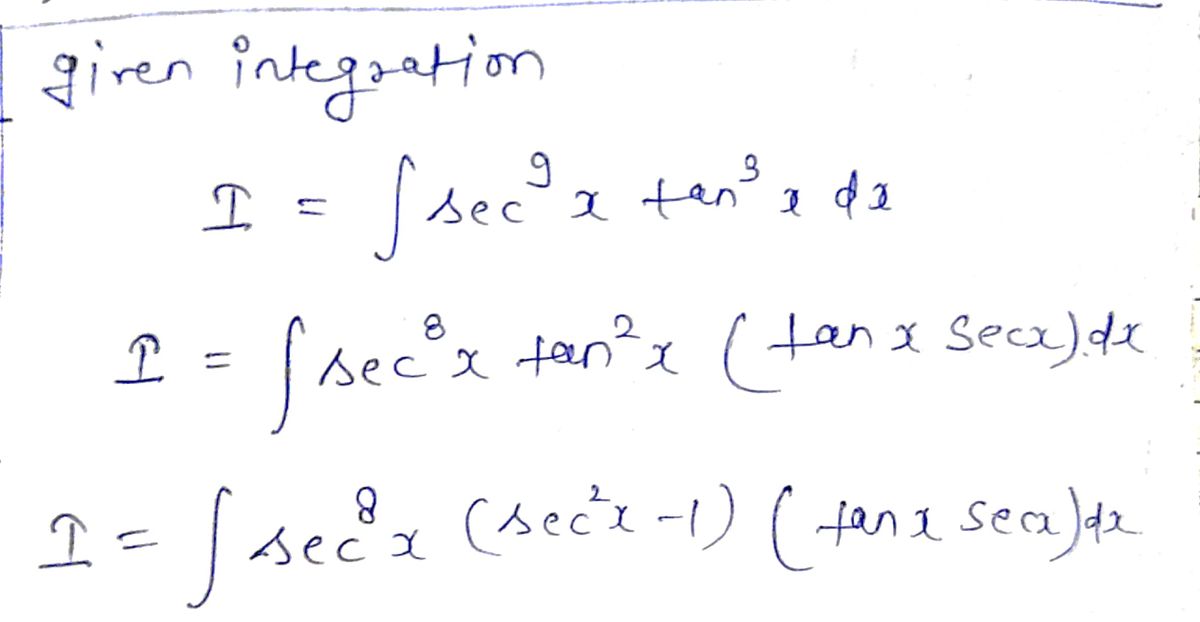 given integration
I = ∫ sec⁹x tan³x dx
I = ∫ sec⁸x tan²x (tan x secx).dx
I = ∫ sec⁸x (sec²x -1) (tan x secx)dx